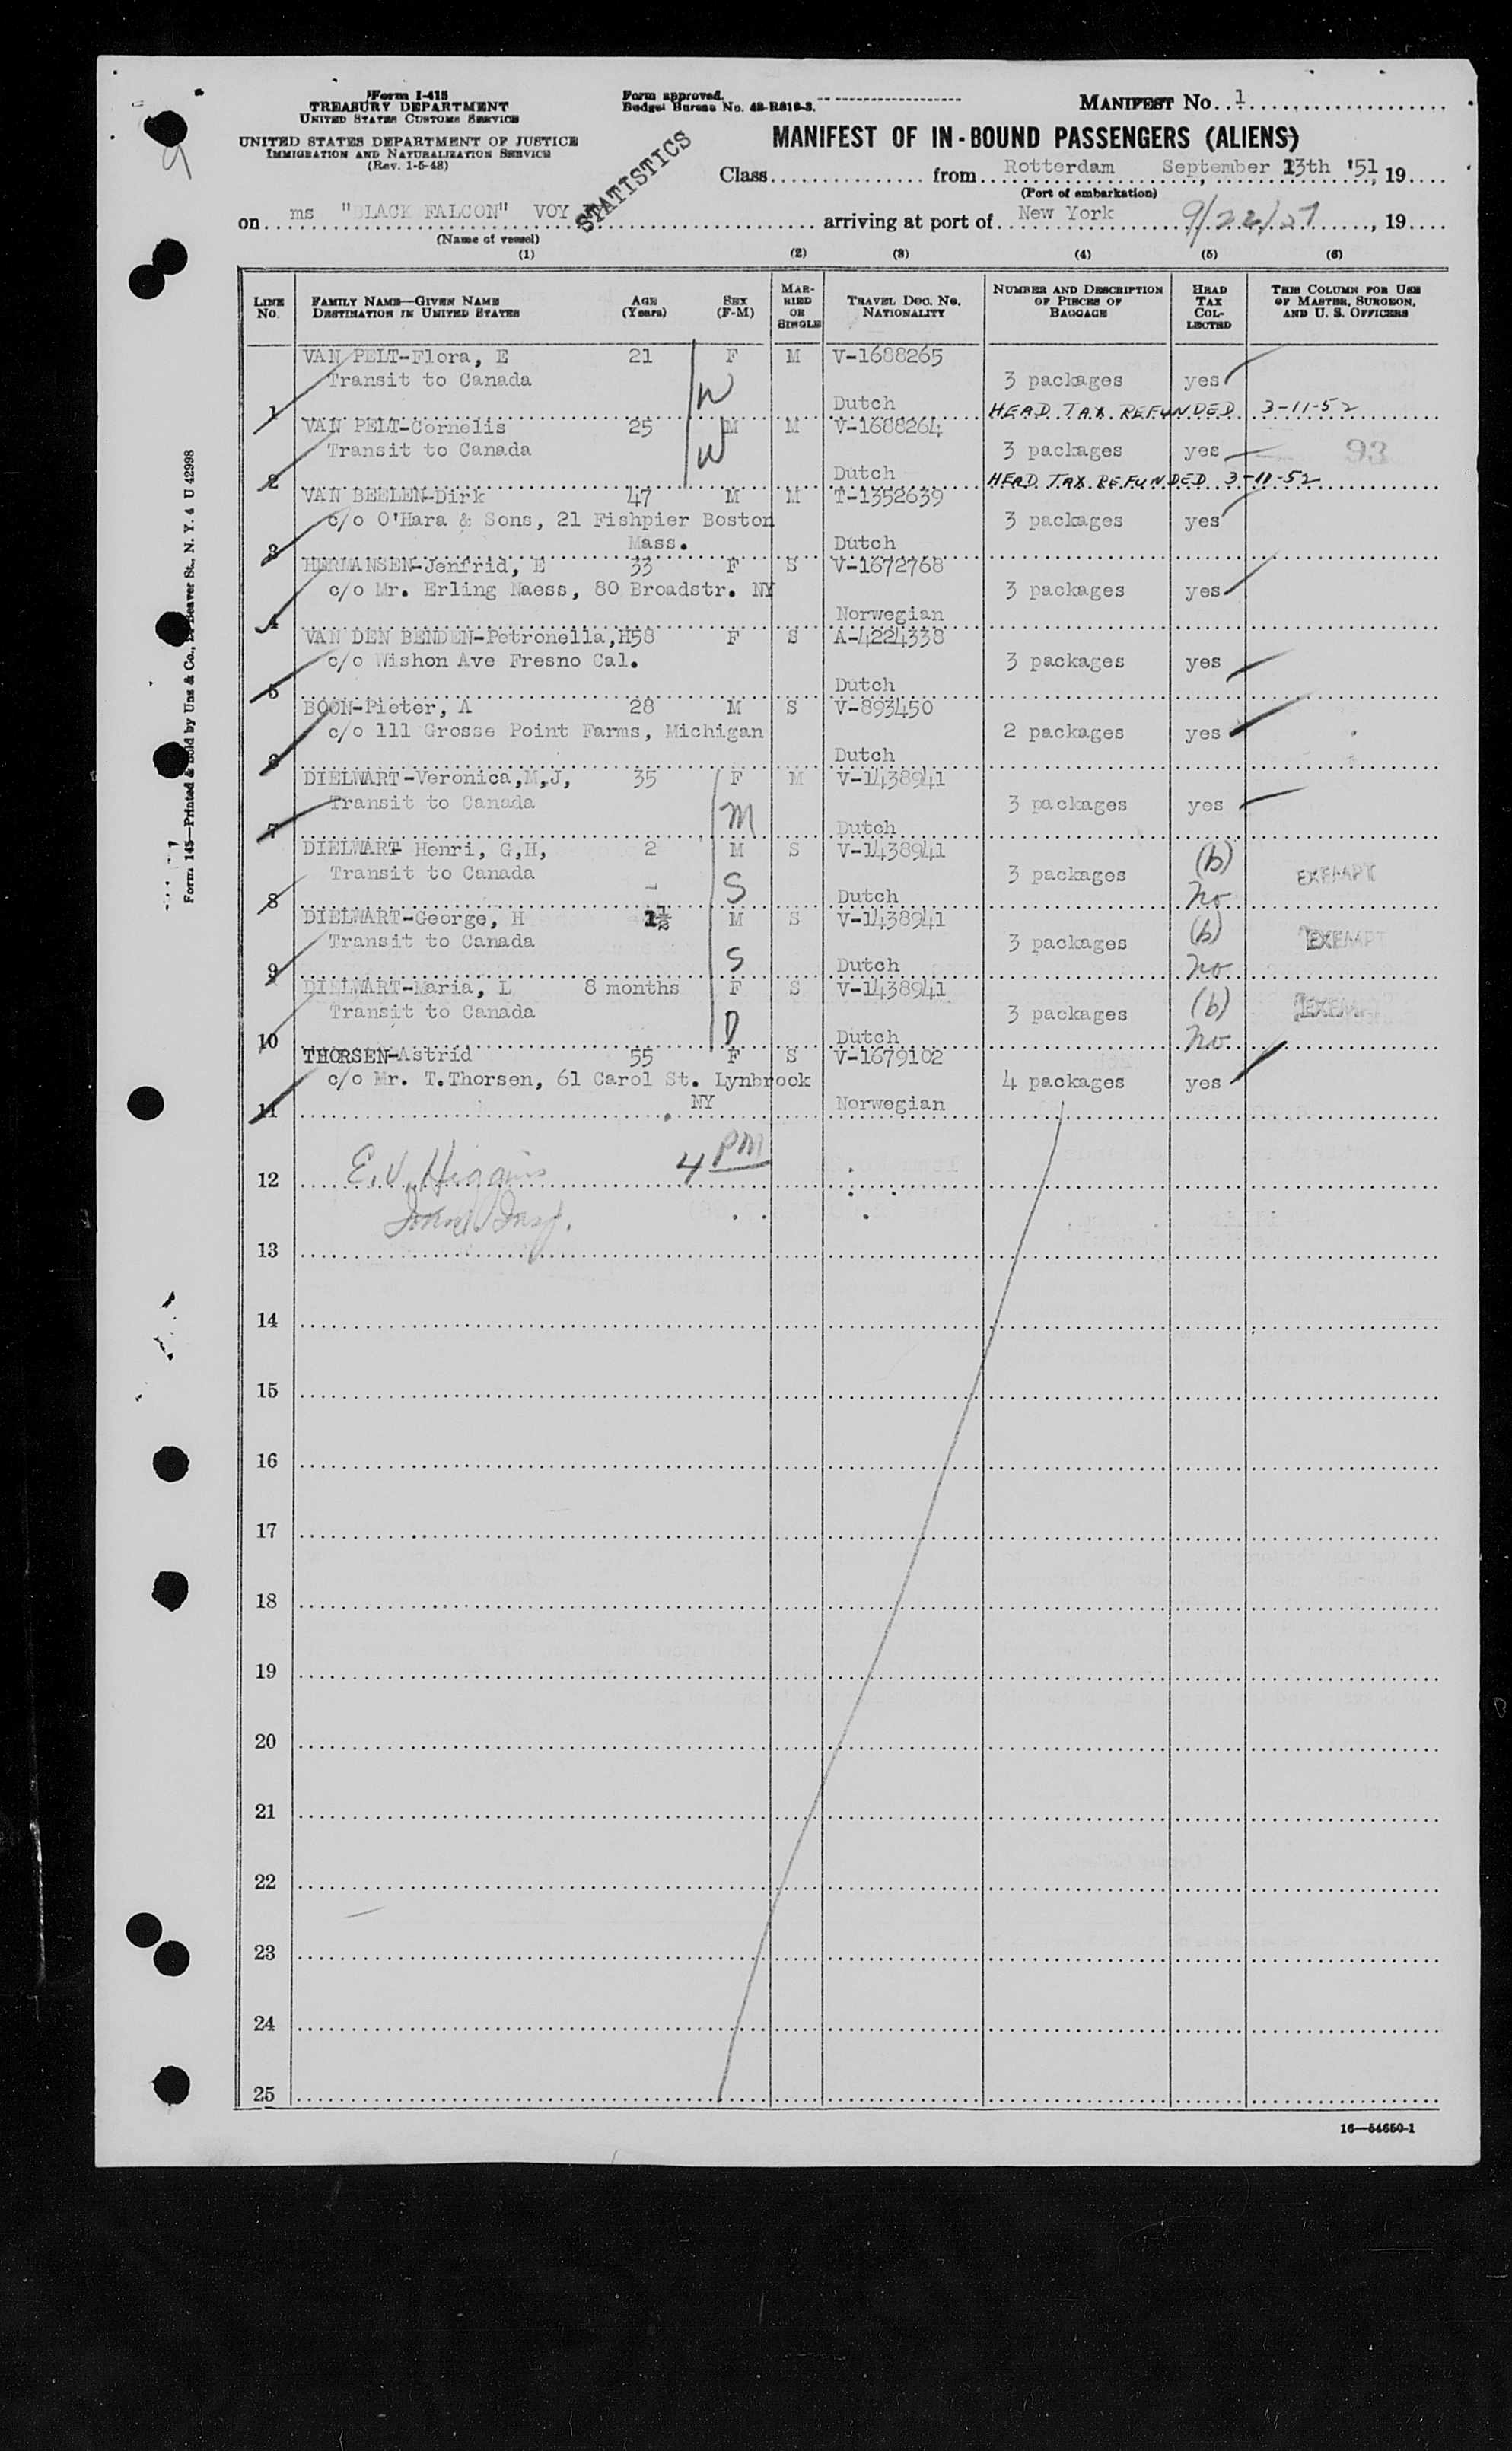 Form I-415
TREASURY DEPARTMENT
UNITED STATES CUSTOMS SERVICE
UNITED STATES DEPARTMENT OF JUSTICE
IMMIGRATION AND NATURALIZATION SERVICE
(Rev. 1-5-48)
Form approved.
Budget Bureau No. 43-R818-3.
MANIFEST No. 1
STATISTICS
MANIFEST OF IN-BOUND PASSENGERS (ALIENS)
Class from Rotterdam September 13th '51, 19
(Port of embarkation)
on ms "BLACK FALCON" VOY arriving at port of New York 9/22/51, 19
(Name of vessel)
(1) (2) (3) (4) (5) (6)
LINE No. FAMILY NAME—GIVEN NAME DESTINATION IN UNITED STATES AGE (Years) SEX (F-M) MARRIED OR SINGLE TRAVEL DOC. No. NATIONALITY NUMBER AND DESCRIPTION OF PIECES OF BAGGAGE HEAD TAX COLLECTED THIS COLUMN FOR USE OF MASTER, SURGEON, AND U. S. OFFICERS
VAN PELT-Flora, E 21 F M V-1688265
Transit to Canada W 3 packages yes
1 Dutch HEAD TAX REFUNDED 3-11-52
VAN PELT-Cornelis 25 M M V-1688264
Transit to Canada W 3 packages yes 93
2 Dutch HEAD TAX REFUNDED 3-11-52
VAN BEELEN-Dirk 47 M M T-1352639
c/o O'Hara & Sons, 21 Fishpier Boston 3 packages yes
3 Mass. Dutch
HERMANSEN-Jenfrid, E 33 F S V-1672768
c/o Mr. Erling Naess, 80 Broadstr. NY 3 packages yes
4 Norwegian
VAN DEN BENDEN-Petronella,H58 F S A-4224338
c/o Wishon Ave Fresno Cal. 3 packages yes
5 Dutch
BOON-Pieter, A 28 M S V-893450
c/o 111 Grosse Point Farms, Michigan 2 packages yes
6 Dutch
DIELWART-Veronica,M,J, 35 F M V-1438941
Transit to Canada M 3 packages yes
7 Dutch
DIELWART Henri, G,H, 2 M S V-1438941 (b)
Transit to Canada S 3 packages EXEMPT
8 Dutch no
DIELWART-George, H 1½ M S V-1438941 (b)
Transit to Canada S 3 packages EXEMPT
9 Dutch no
DIELWART-Maria, L 8 months F S V-1438941 (b)
Transit to Canada D 3 packages EXEMPT
10 Dutch no
THORSEN-Astrid 55 F S V-1679102
c/o Mr. T.Thorsen, 61 Carol St. Lynbrook 4 packages yes
11 NY Norwegian
12 E. V. Higgins 4 PM
13
14
15
16
17
18
19
20
21
22
23
24
25
16—54650-1
9
Form 145—Printed & Sold by Unz & Co., Beaver St., N. Y. 4 U 42998